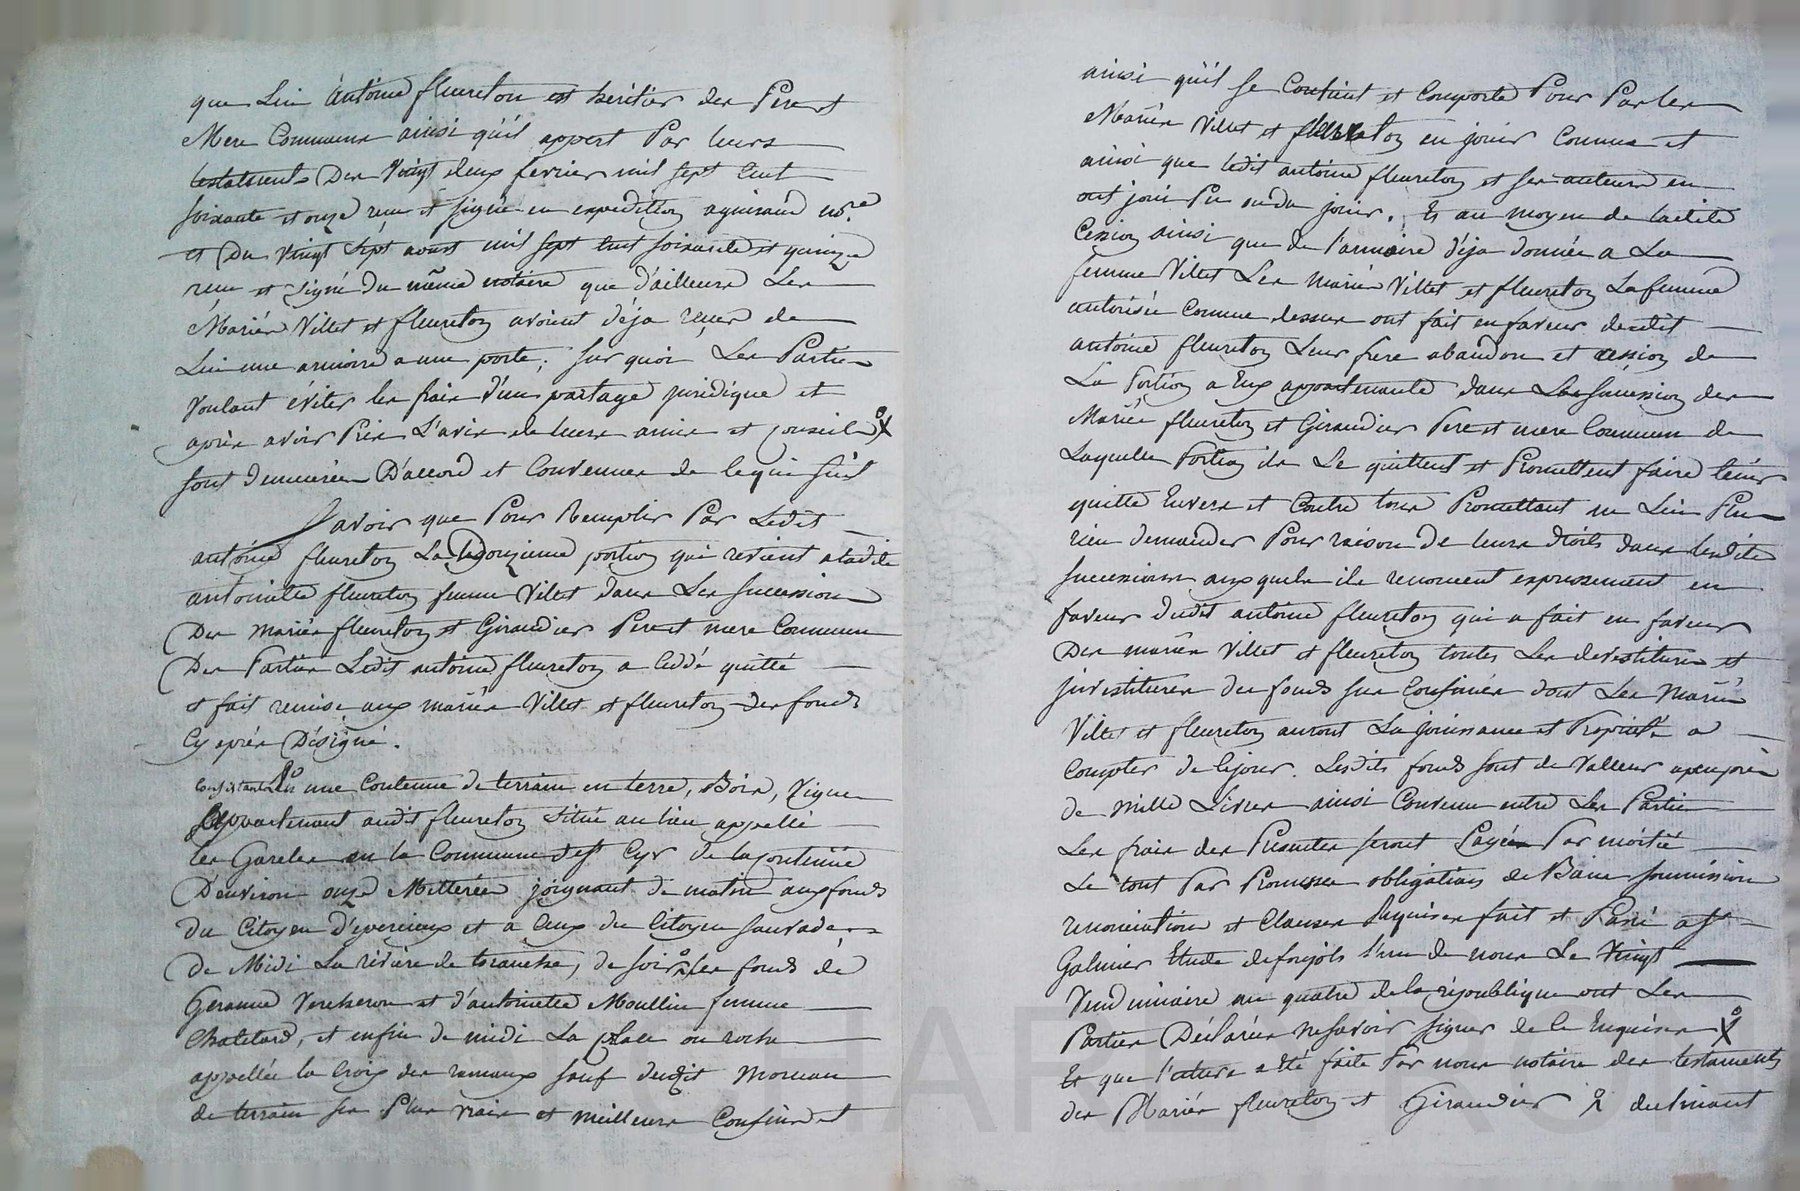 que Lui Antoine fleureton est heritier des Pere et
Mere Communs ainsi qu'il appert Par leurs
testaments Des Vingt deux fevrier mil sept Cent
soixante et onze reçu et signé en expedition aguiraud no.re
et Du Vingt Sept aoust mil sept Cent soixante et quinze
reçu et signé du même notaire que d'ailleurs Les
Mariés Villet et fleureton avoient déja reçus de
Lui une armoire a une porte; sur quoi Les Parties
Voulant éviter les frais d'un partage juridique et
après avoir Pris L'avis de leurs amis et conseils X
sont demeurées D'accord et Convenues de ce qui suit
Savoir que Pour Remplir Par Ledit
antoine fleureton La douzieme portion qui revient a ladite
antoinette fleureton femme Villet dans Les successions
Des mariés fleureton et Giraudier Pere et mere Communs
Des Parties Ledit antoine fleureton a Ceddé quitté
et fait remise aux mariés Villet et fleureton des fonds
Cy après Désigné.
Consistants 1° une Contenue de terrain en terre, Bois, Vigne
appartenant audit fleureton situé au lieu appellé
les Garelles en la Commune de st Cyr de la contenüe
D'environ onze Metterées joignant de matin aux fonds
du Citoyen D'evereieux et a Ceux du Citoyen sauvade
de Midi La riviere de tranche, de soir les fonds de
Gerome Vercheron et d'antoinette Moullin femme
Chatelard, et enfin de midi La place ou roche
appellée la Croix des rameaux sauf dudit Morceau
de terrain ses Plus vrais et meilleurs Confins et
ainsi qu'il se Contient et Comporte Pour Par les
Mariés Villet et fleureton en jouir Comme et
ainsi que ledit antoine fleureton et ses auteurs en
ont joui Pu ou du jouir. Et au moyen de ladite
Cession ainsi que de l'armoire déja donnée a La
femme Villet Les Mariés Villet et fleureton La femme
autorisée Comme dessus ont fait en faveur dudit
antoine fleureton Leur frere abandon et cession de
La Portion a Eux appartenante dans Les succession des
Mariés fleureton et Giraudier Pere et mere Communs de
Laquelle Portion ils Le quittent et Promettent faire tenir
quitte Envers et Contre tous Promettant ne Lui Plus
rien demander Pour raison de leurs droits dans lesdites
successions auxquels ils renoncent expressement en
faveur dudit antoine fleureton qui a fait en faveur
Des mariés Villet et fleureton toutes Les devestitures et
investitures des fonds sus Confinés dont Les Mariés
Villet et fleureton auront La jouissance et Proprieté a
Compter de Cejour. Lesdits fonds sont de Valleur apeuprès
de mille Livres ainsi Convenu entre Les Parties
Les frais des Presentes seront Payées Par moitié
Le tout Par Promesses obligations de Biens soumission
renonciation et Clauses Requises fait et Passé a st
Galmier Etude de foujols l'un de nous Le Vingt
Vendimiaire an quatre de la république ont Les
Parties Déclarées ne savoir signer de Ce Enquises X
Et que l'ature a été faite Par nous notaire des testaments
des Mariés fleureton et Giraudier